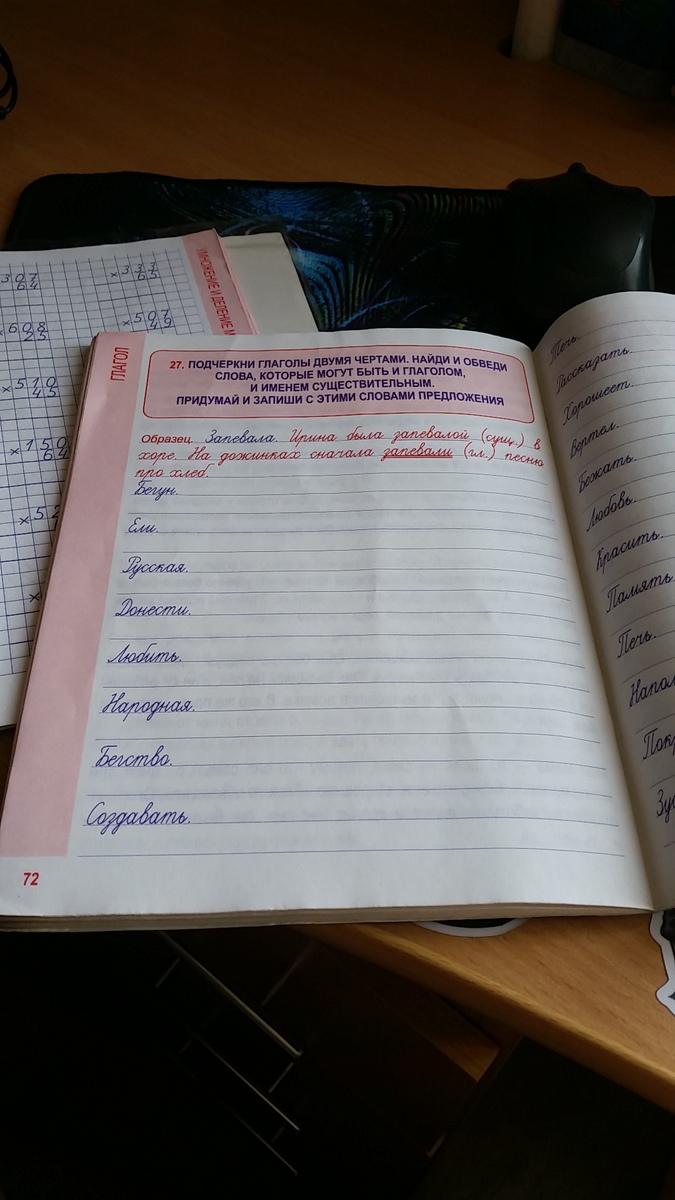 ГЛАГОЛ
27. ПОДЧЕРКНИ ГЛАГОЛЫ ДВУМЯ ЧЕРТАМИ. НАЙДИ И ОБВЕДИ
СЛОВА, КОТОРЫЕ МОГУТ БЫТЬ И ГЛАГОЛОМ,
И ИМЕНЕМ СУЩЕСТВИТЕЛЬНЫМ.
ПРИДУМАЙ И ЗАПИШИ С ЭТИМИ СЛОВАМИ ПРЕДЛОЖЕНИЯ
Образец. Запевала. Ирина была запевалой (сущ.) в
хоре. На дожинках сначала запевали (гл.) песню
про хлеб.
Бегун.
Ели.
Русская.
Донести.
Любить.
Народная.
Бегство.
Создавать.
72
Течь.
Рассказать.
Хорошеет.
Вертел.
Бежать.
Любовь.
Красить.
Память.
Печь.
УМНОЖЕНИЕ И ДЕЛЕНИЕ
307
64
× 337
65
× 608
25
× 507
49
× 510
45
× 150
64